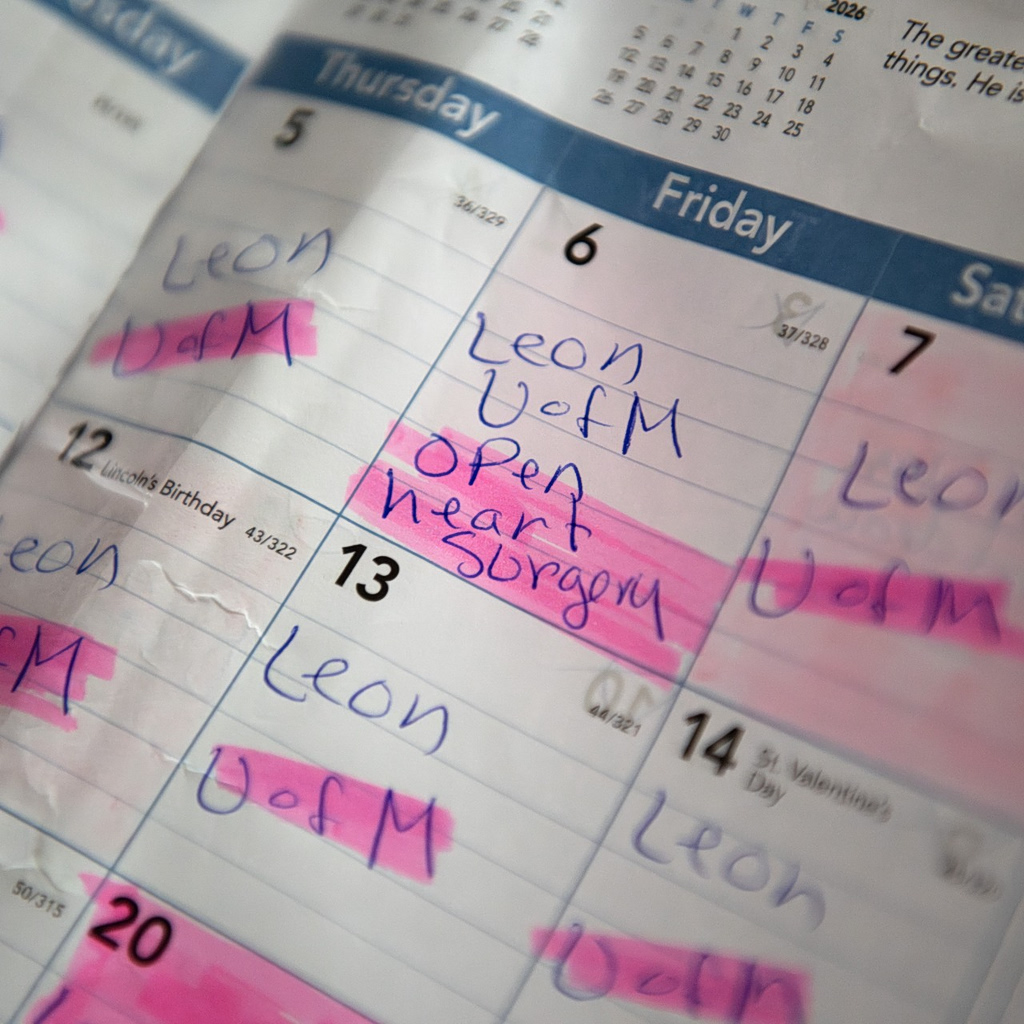 2026
W T F S
1 2 3 4
5 6 7 8 9 10 11
12 13 14 15 16 17 18
19 20 21 22 23 24 25
26 27 28 29 30
The greate
things. He is
Thursday
Friday
Sat
5
36/329
Leon
U of M
6
37/328
Leon
U of M
open
heart
surgery
7
Leon
U of M
12
Lincoln's Birthday
43/322
eon
fM
13
44/321
Leon
U of M
14
St. Valentine's
Day
Leon
U of M
50/315
20